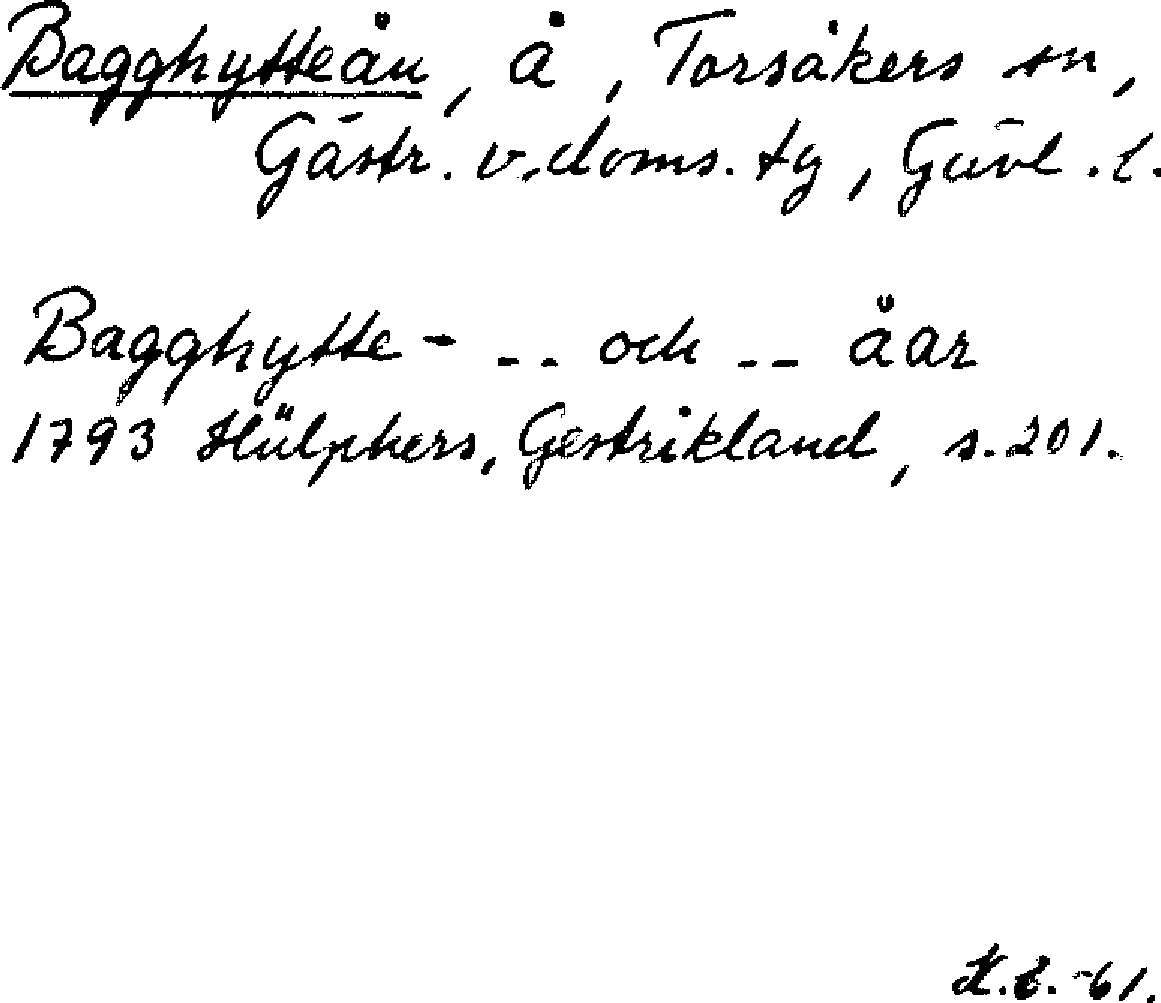 Bagghytteån, å, Torsåkers sn,
Gästr. v. doms. tg, Gävl. l.
Bagghytte- -- och -- åar
1793 Hülphers, Gestrikland, s. 201.
-61.